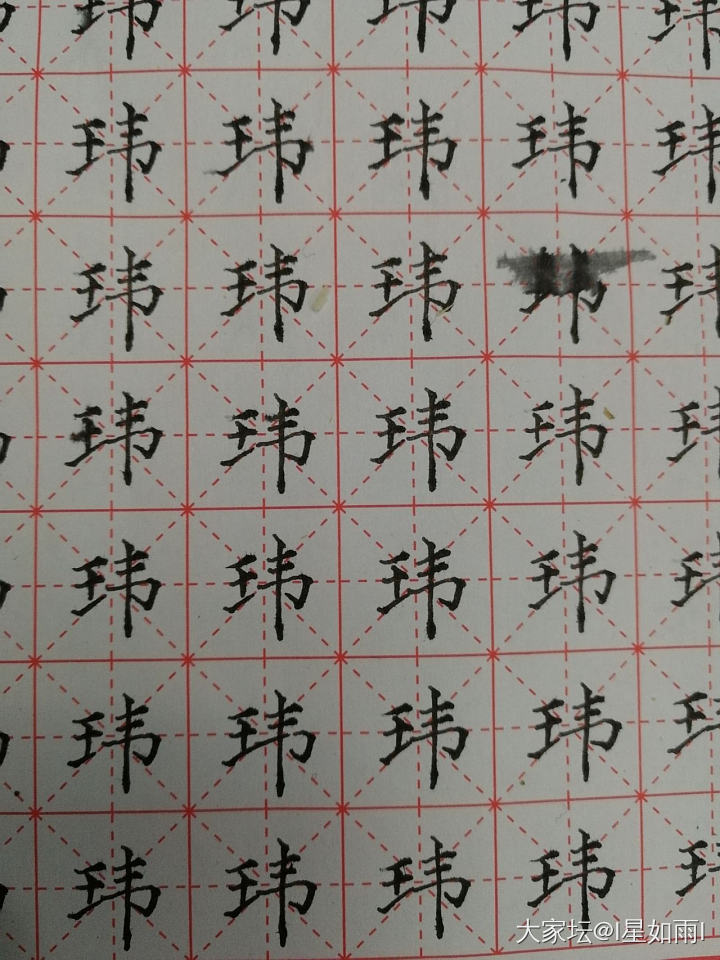 玮玮玮玮玮
玮玮玮玮玮
玮玮玮玮玮
玮玮玮玮玮
玮玮玮玮
玮玮玮玮
玮玮玮玮
大家坛@I星如雨I